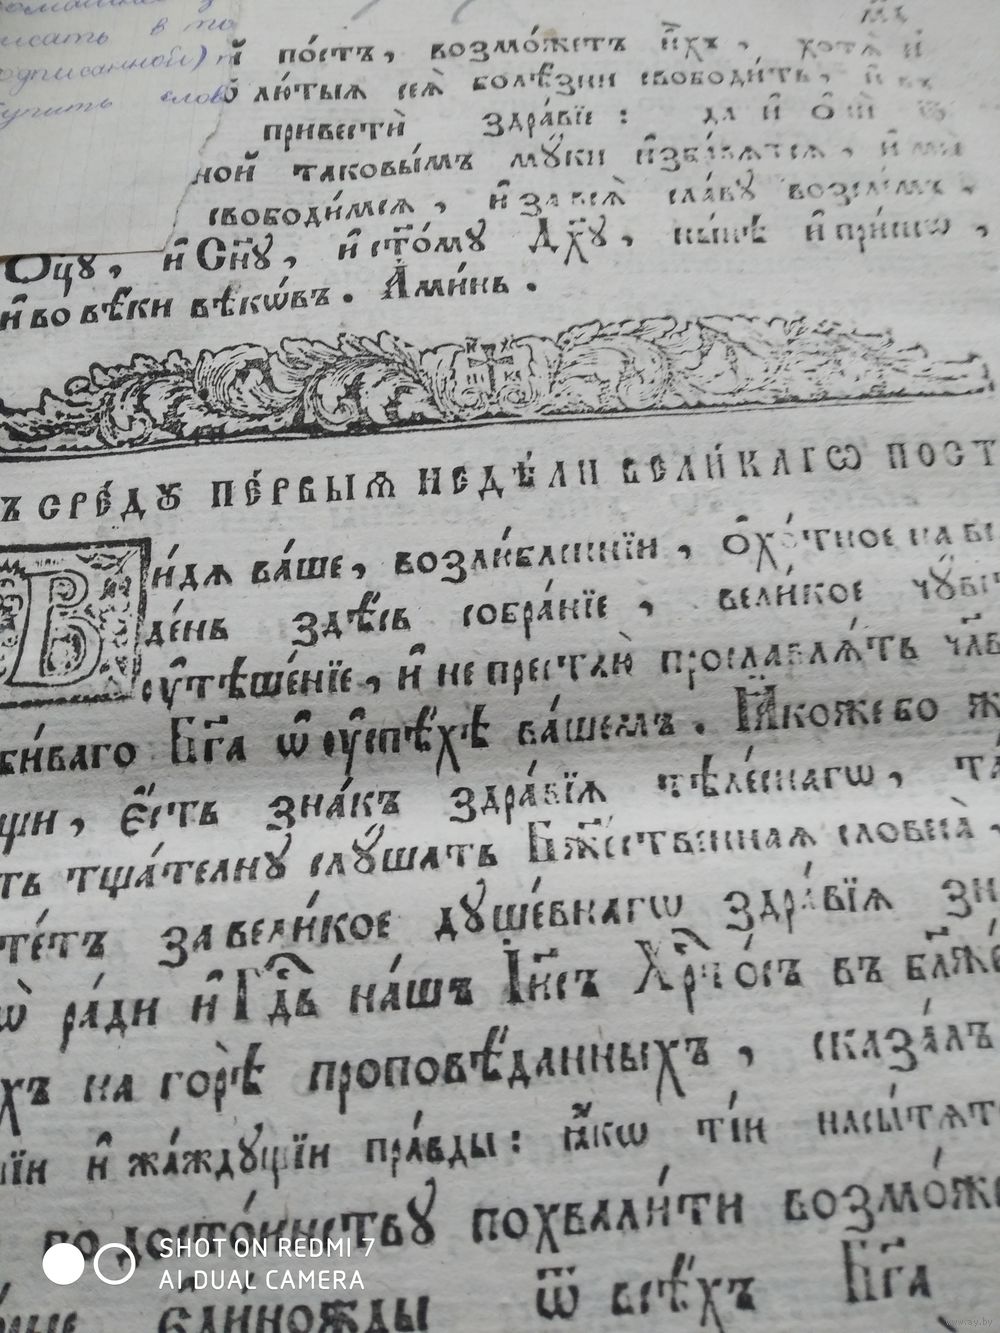 писать в то
одписанной) п
купить слов
й по́стъ, возмо́жетъ и҆̀хъ, хотѧ̀ и҆
лю́тыѧ сеѧ̀ болѣ́зни свободи́ть, и҆ въ
привестѝ здра́вїе: да и҆
ной таковы́мъ мꙋ́ки и҆зба́вѧтсѧ, и҆ мы
свободи́мсѧ, и҆ за всѧ̀ сла́вꙋ возсле́мъ,
Ѻ҆ц҃ꙋ, и҆ Сн҃ꙋ, и҆ ст҃о́мꙋ Дх҃ꙋ, ны́нѣ и҆ при́снѡ,
и҆ во вѣ́ки вѣкѡ́въ. А҆ми́нь.
І҃С Х҃С
НИ КА
Ъ СРЕ́ДꙊ ПЕ́РВЫѦ НЕДѢ́ЛИ ВЕЛИ́КАГѠ ПОСТ
Ви́дѧ ва́ше, возлю́бленнїи, ѻ҆хо́тное на
де́нь здѣ́сь собра́нїе, вели́кое чꙋ́в
оу҆тѣше́нїе, и҆ не престаю̀ прославлѧ́ть чл҃в
би́ваго Бг҃а ѡ҆ оу҆спѣ́хѣ ва́шемъ. Ꙗ҆́коже бо
щи, є҆́сть зна́къ здра́вїѧ тѣле́снагѡ, та
ть тща́телнꙋ слꙋ́шать Бж҃е́ственнаѧ словеса̀,
те́тъ за вели́кое дꙋше́внагѡ здра́вїѧ зн
ѡ̀ ра́ди и҆ Гд҇ь на́шъ І҆и҃съ Хрⷭ҇то́съ въ бл҃же́
хъ на горѣ̀ проповѣ́данныхъ, сказа́лъ
нїи и҆ жа́ждꙋщїи пра́вды: ꙗ҆́кѡ ті́и насы́тѧт
по досто́инствꙋ похвали́ти возмо́же
є҆ди́ножды ѿ всѣ́хъ Бг҃а
SHOT ON REDMI 7
AI DUAL CAMERA
www.ay.by